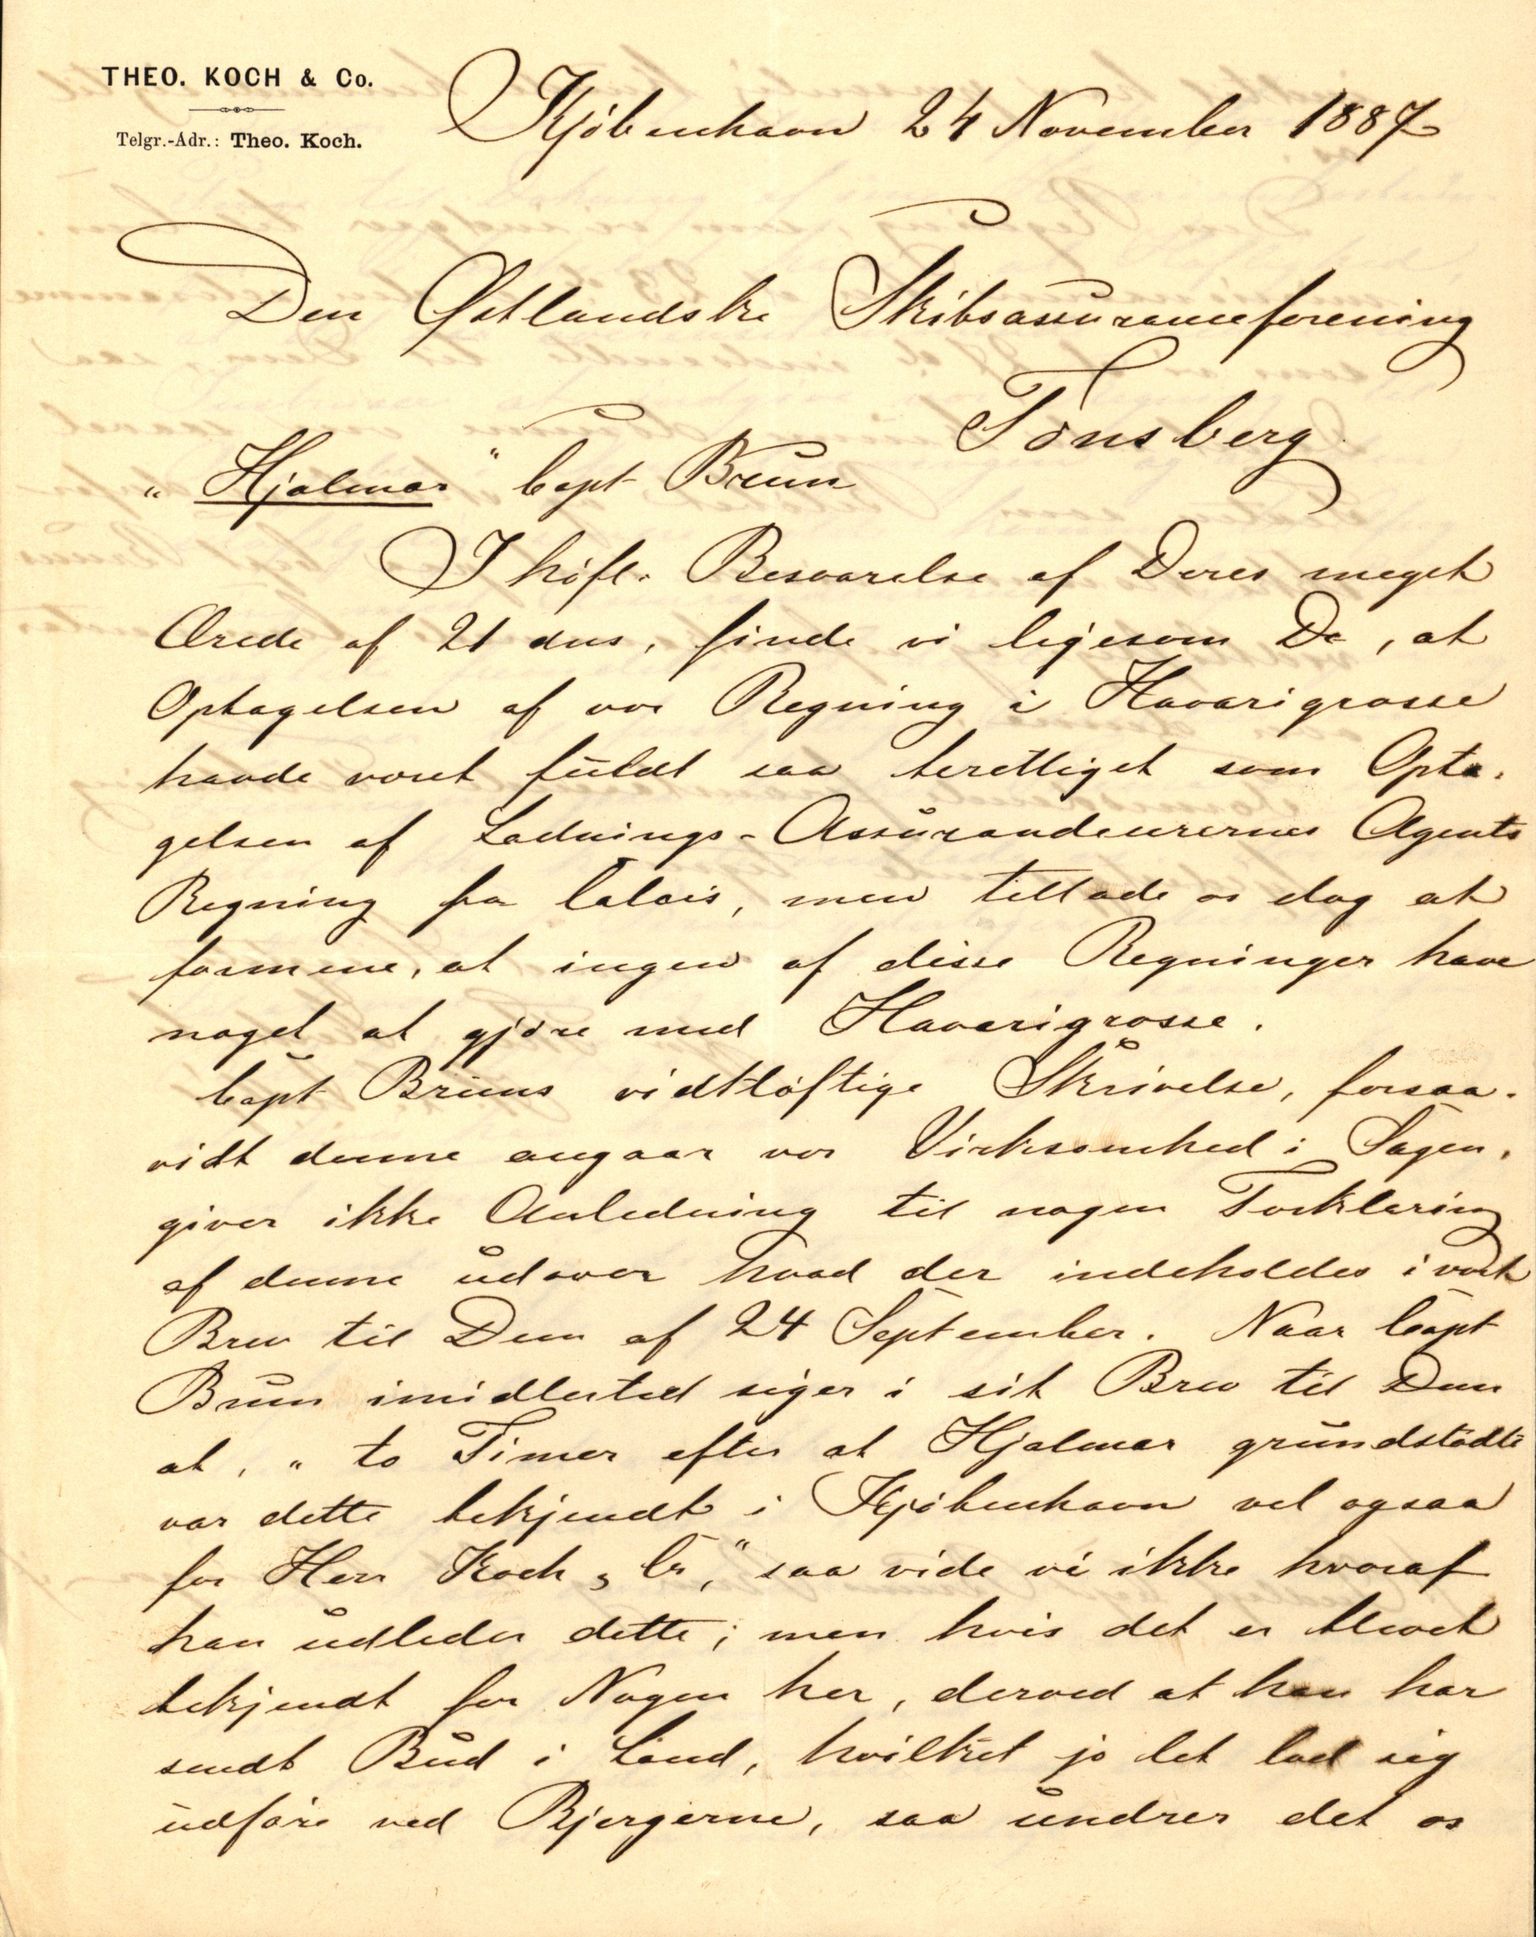 THEO. KOCH & Co.
Telgr.-Adr.: Theo. Koch.
Kjöbenhavn 24 November 1887
Den Østlandske Skibsassuranceforening
Tönsberg
"Hjalmar" Capt Brun
I höfl. Besvarelse af Deres meget
Ærede af 21 dns, finde vi ligesom De, at
Optagelsen af vor Regning i Havarigrosse
havde været fuldt saa berettiget som Opta-
gelsen af Ladnings-Assurandeurernes Agents
Regning fra Calais, men tillade os dog at
formene, at ingen af disse Regninger have
noget at gjöre med Havarigrosse.
Capt Bruns vidtlöftige Skrivelse, forsaa-
vidt denne angaar vor Virksomhed i Sagen,
giver ikke Anledning til nogen Forklaring
af denne udover hvad der indeholdes i vort
Brev til Dem af 24 September. Naar Capt
Brun imidlertid siger i sit Brev til Dem
at, "to Timer efter at Hjalmar grundstödte
var dette bekjendt i Kjöbenhavn vel ogsaa
for Herr Koch & Co," saa vide vi ikke hvoraf
han udleder dette; men hvis det er blevet
bekjendt for Nogen her, derved at han har
sendt Bud i Land, hvilket jo let lod sig
udföre ved Bjergerne, saa undrer det os